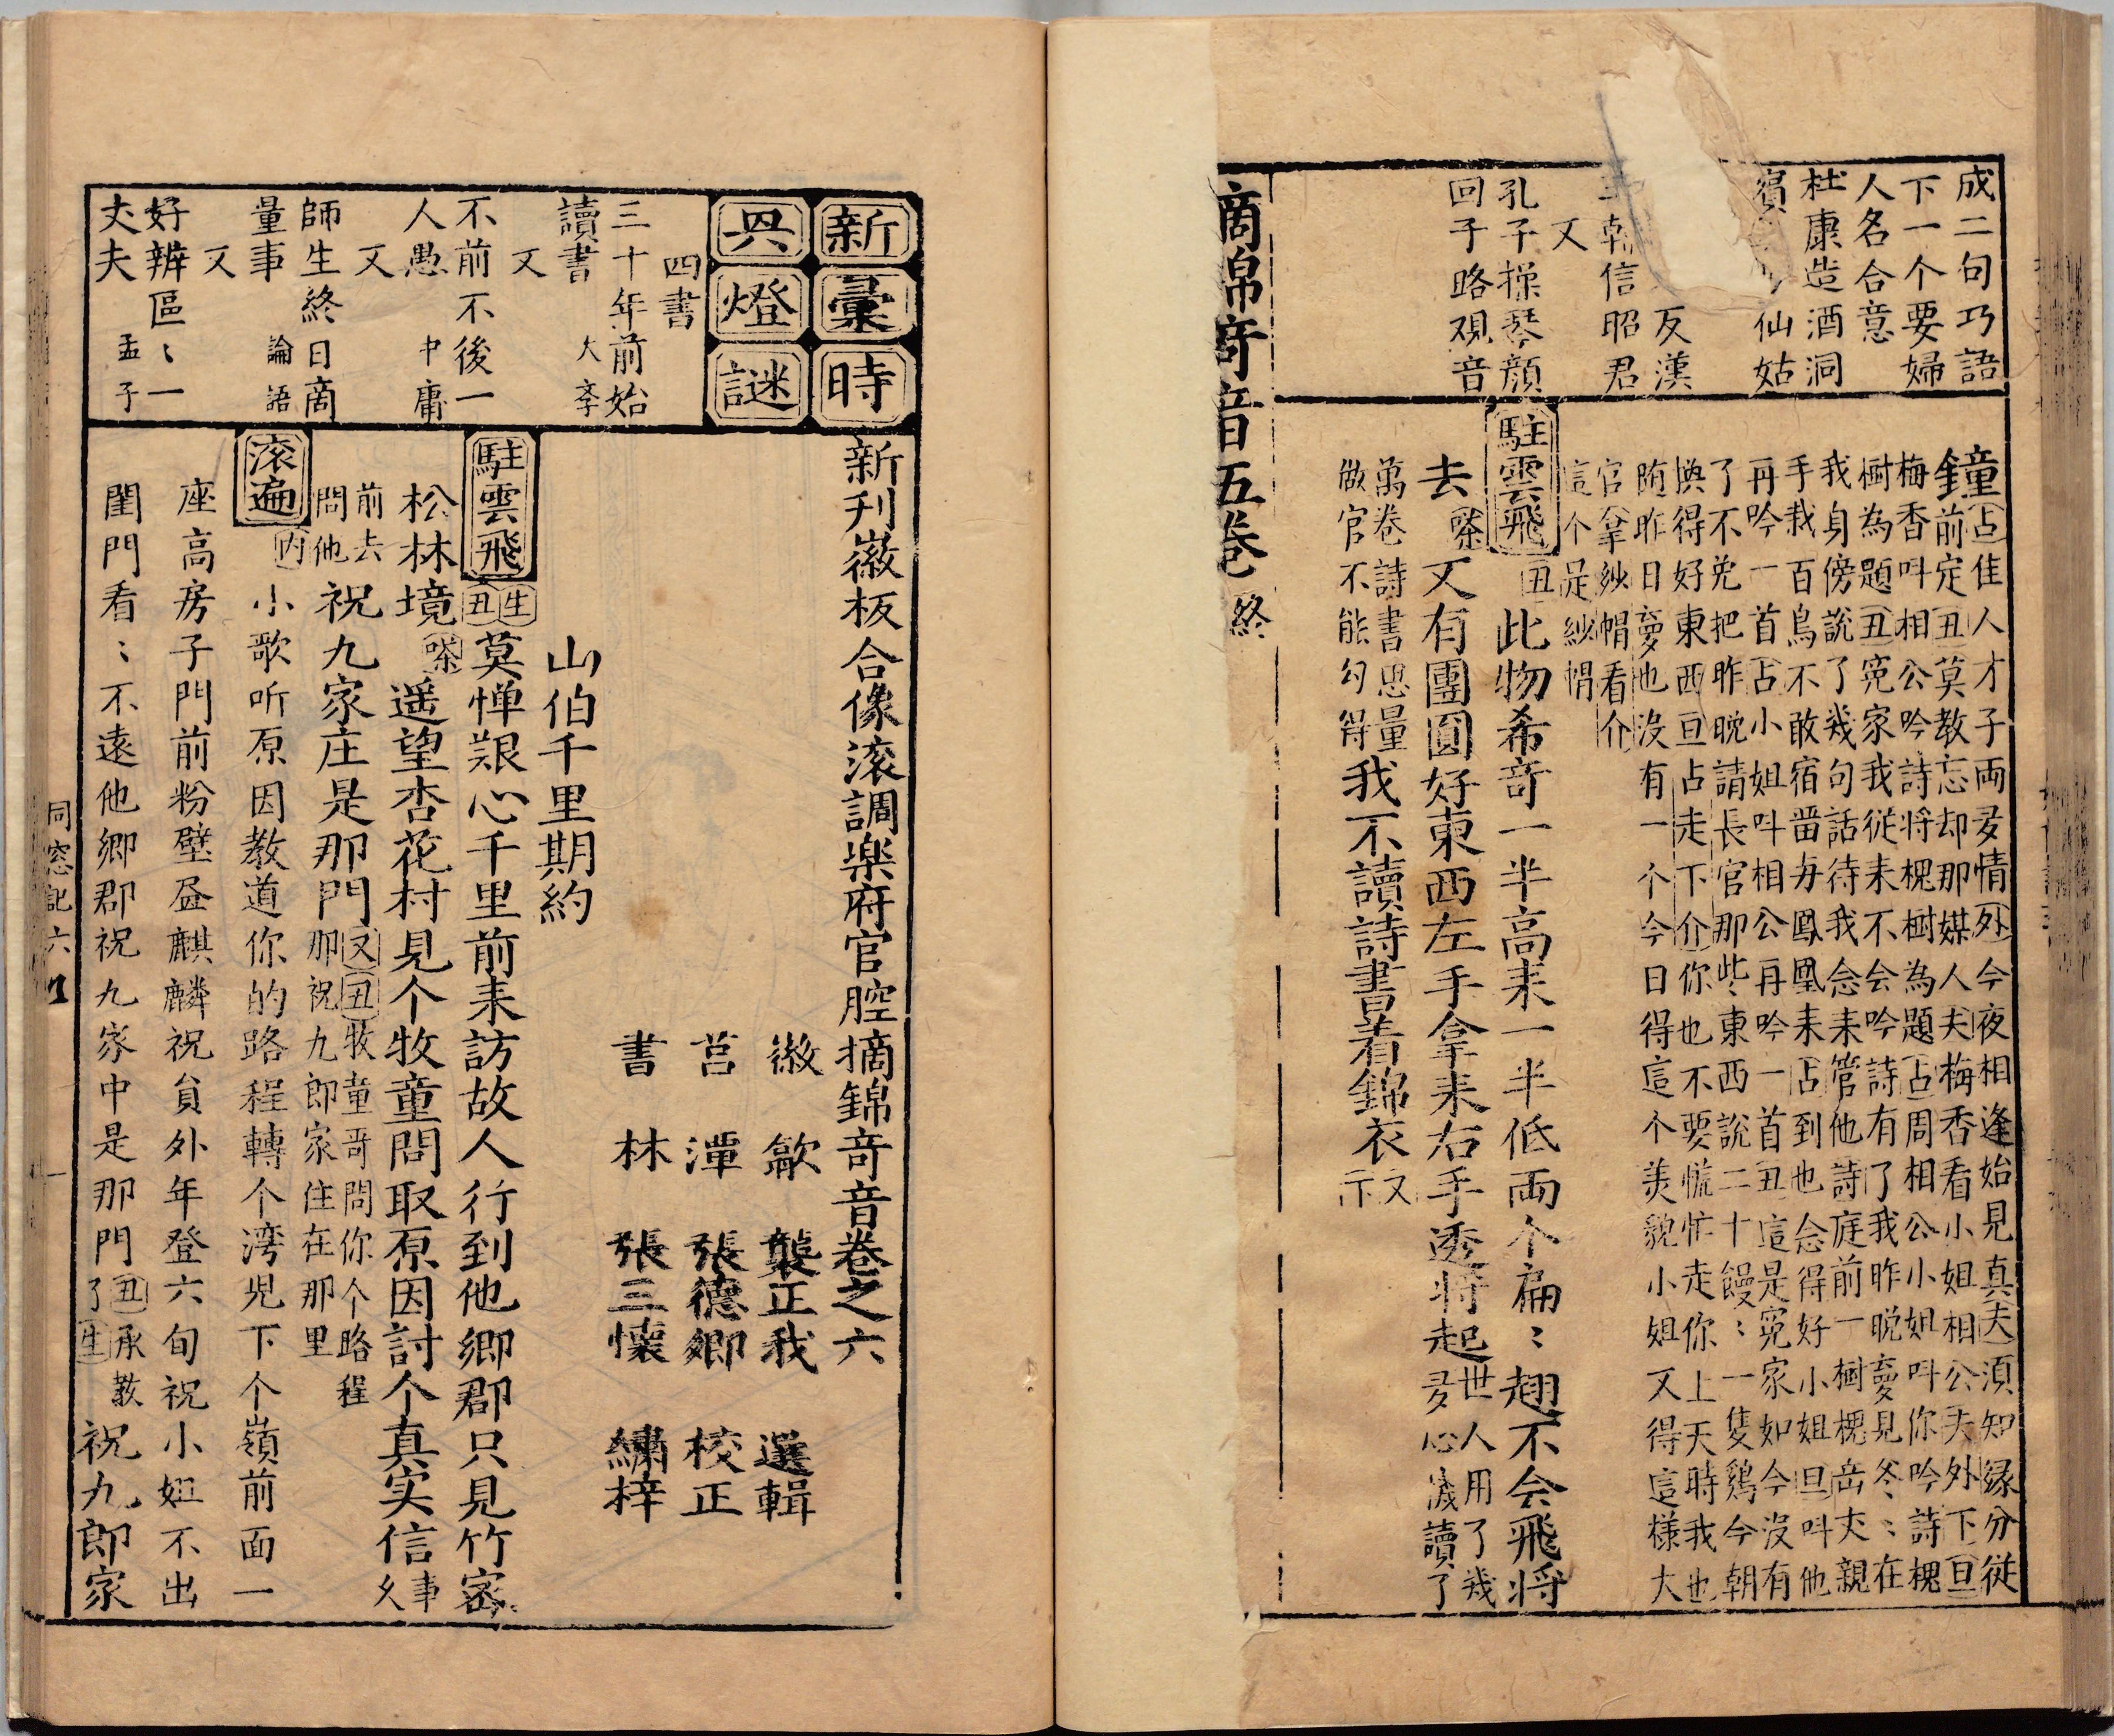 成二句巧語
下一个要婦
人名合意
杜康造酒洞
賓
仙姑
友漢
韓信昭君
又
孔子操琴顔
回子路观音
鐘占佳人才子両爻情外今夜相逢始見真夫湏知縁分従
前定丑莫教忘却那媒人夫梅香看小姐相公夫外下旦
梅香呌相公吟詩将槐樹為題占周相公小姐呌你吟詩槐
樹為題丑寃家我従来不会吟詩有了我昨晚夢見冬〻在
我身傍説了幾句話待我念来管他詩庭前一樹槐岳丈親
手栽百鳥不敢宿畄与鳳凰来占到也念得好小姐旦呌他
再吟一首占小姐呌相公再吟一首丑這是寃家如今没有
了不免把昨晚請長官那些東西説二十饅〻一隻鷄今朝
換得好東西亘占走下介你也不要慌忙走你上天時我也
随昨日夢也没有一个今日得這个美貌小姐又得這様大
官拿紗帽看介
這个是紗帽
駐雲飛
丑此物希奇一半高来一半低両个扁〻翅不会飛将
去嗏又有團圓好東西左手拿来右手透将起世人用了幾
爻心濊讀了
萬卷詩書思量
做官不能勾得我不讀詩書着錦衣又下
摘錦奇音五卷終
新彙時
興燈謎
四書
三十年前始
讀書 大斈
又
不前不後一
人愚 中庸
又
師生終日啇
量事 論語
又
好辨區〻一
丈夫 孟子
新刋徽板合像滚調楽府官腔摘錦奇音卷之六
徽歙龔正我選輯
莒潬張德卿校正
書林張三懷繡梓
山伯千里期約
駐雲飛
生丑莫惮艱心千里前来訪故人行到他卿郡只見竹密
松林境嗏遥望杏花村見个牧童問取原因討个真实信事久
前去問他祝九家庄是那門又丑牧童哥問你个路程
那祝九郎家住在那里
滚遍
内小歌听原因教道你的路程轉个湾児下个嶺前面一
座高房子門前粉壁盈麒麟祝貟外年登六旬祝小姐不出
閨門看〻不遠他卿郡祝九家中是那門丑承教了生祝九郎家
同窓記六
一